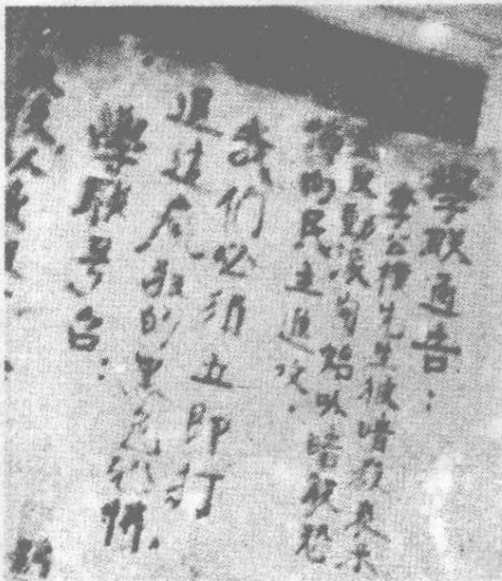 學联通告：
李公樸先生被暗殺表示
反動派開始以暗殺恐
怖向民主進攻．
我们必須立即打
退这疯狂的黑色恐怖．
學联号召：